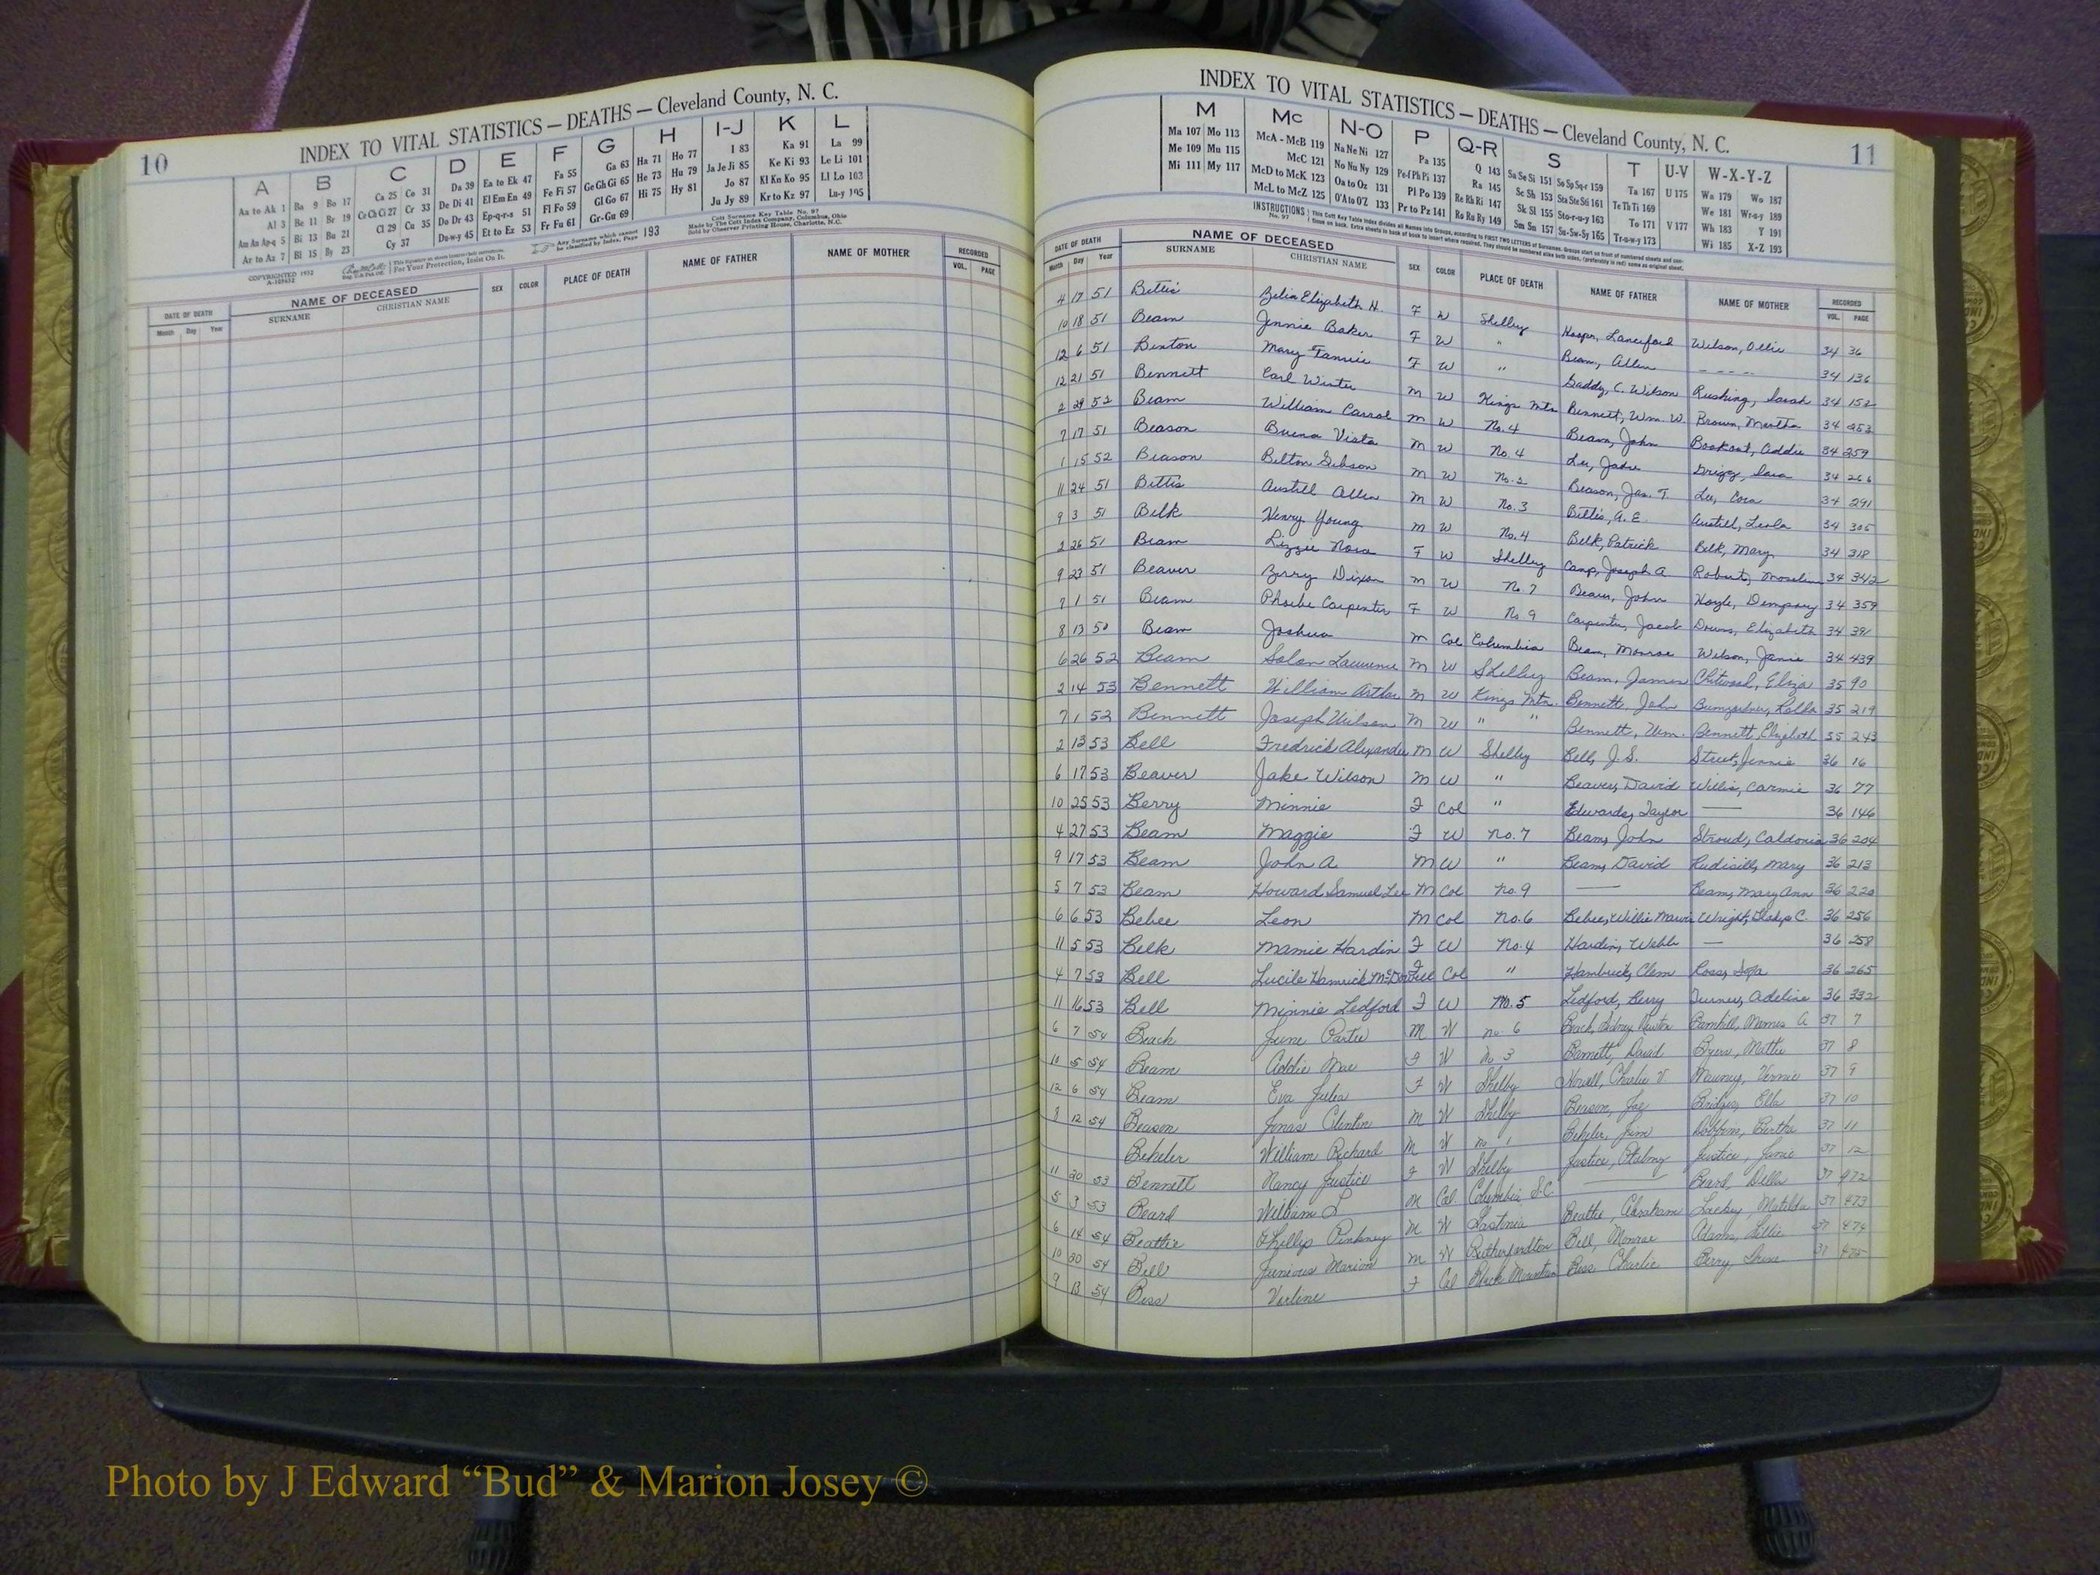 10
INDEX TO VITAL STATISTICS — DEATHS — Cleveland County, N. C.
A B C D E F G H I-J K L
Aa to Ak 1 Ba 9 Bo 17 Ca 25 Co 31 Da 39 Ea to Ek 47 Fa 55 Ga 63 Ha 71 Ho 77 I 83 Ka 91 La 99
Al 3 Be 11 Br 19 Ce Ch Ci 27 Cr 33 De Di 41 El Em En 49 Fe Fi 57 Ge Gh Gi 65 He 73 Hu 79 Ja Je Ji 85 Ke Ki 93 Le Li 101
Am An Ap-q 5 Bi 13 Bu 21 Cl 29 Cu 35 Do Dr 43 Ep-q-r-s 51 Fl Fo 59 Gl Go 67 Hi 75 Hy 81 Jo 87 Kl Kn Ko 95 Ll Lo 103
Ar to Az 7 Bl 15 By 23 Cy 37 Du-w-y 45 Et to Ez 53 Fr Fu 61 Gr-Gu 69 Ju Jy 89 Kr to Kz 97 Lu-y 105
COPYRIGHTED 1932
For Your Protection, Insist On It.
Any Surname which cannot be classified by Index, Page 193
Cott Surname Key Table No. 97
Made by The Cott Index Company, Columbus, Ohio
Sold by Observer Printing House, Charlotte, N.C.
DATE OF DEATH NAME OF DECEASED SEX COLOR PLACE OF DEATH NAME OF FATHER NAME OF MOTHER RECORDED
Month Day Year SURNAME CHRISTIAN NAME VOL. PAGE
INDEX TO VITAL STATISTICS — DEATHS — Cleveland County, N. C.
11
M Mc N-O P Q-R S T U-V W-X-Y-Z
Ma 107 Mo 113 McA - McB 119 Na Ne Ni 127 Pa 135 Q 143 Sa Se Si 151 So Sp Sq-r 159 Ta 167 U 175 Wa 179 Wo 187
Me 109 Mu 115 McC 121 No Nu Ny 129 Pe-f Ph Pi 137 Ra 145 Sc Sh 153 Sta Ste Sti 161 Te Th Ti 169 We 181 Wr-u-y 189
Mi 111 My 117 McD to McK 123 Oa to Oz 131 Pl Po 139 Re Rh Ri 147 Sk Sl 155 Sto-r-u-y 163 To 171 V 177 Wh 183 Y 191
McL to McZ 125 O'A to O'Z 133 Pr to Pz 141 Ro Ru Ry 149 Sm Sn 157 Su-Sw-Sy 165 Tr-u-w-y 173 Wi 185 X-Z 193
INSTRUCTIONS No. 97
DATE OF DEATH NAME OF DECEASED SEX COLOR PLACE OF DEATH NAME OF FATHER NAME OF MOTHER RECORDED
Month Day Year SURNAME CHRISTIAN NAME VOL. PAGE
4 17 51 Bettis Zelia Elizabeth H. F W Shelby Wilson, Ollie 34 36
10 18 51 Beam Jennie Baker F W " Beam, Allen - - - - 34 136
12 6 51 Benton Mary Fannie F W " Gaddy, C. Wilson Rushing, Sarah 34 152
12 21 51 Bennett Earl Winter M W Kings Mtn Bennett, Wm. W. Brown, Martha 34 253
2 29 52 Beam William Carrol M W No. 4 Beam, John Bookout, Addie 34 259
7 17 51 Beason Buena Vista M W No. 4 Lee, 34 266
1 15 52 Beason Belton Gibson M W No. 2 Beason, Jas. T. Lee, Cora 34 291
11 24 51 Bettis Austell Allen M W No. 3 Bettis, A. E. Austell, 34 305
9 3 51 Belk Henry Young M W No. 4 Belk, Patrick Belk, Mary 34 318
2 26 51 Beam Lizzie Nora F W Shelby Camp, Joseph A 34 342
9 23 51 Beaver Berry Dixon M W No. 7 Beaver, John Hoyle, Dempsey 34 359
7 1 51 Beam Phoebe Carpenter F W No 9 Carpenter, Jacob Downs, Elizabeth 34 391
8 13 50 Beam Joshua M Col Columbia Beam, Monroe Wilson, Janie 34 439
6 26 52 Beam Solon Lawrence M W Shelby Beam, James Chitwood, Eliza 35 90
2 14 53 Bennett William Arthur M W Kings Mtn. Bennett, John Bumgardner, 35 219
7 1 52 Bennett Joseph Wilson M W " " Bennett, Wm. Bennett, Elizabeth 35 243
2 13 53 Bell Fredrick Alexander M W Shelby Bell, J. S. Street, Jennie 36 16
6 17 53 Beaver Jake Wilson M W " Beaver, David Willis, Carmie 36 77
10 25 53 Berry Minnie F Col " Edwards, Taylor — 36 146
4 27 53 Beam Maggie F W No. 7 Beam, John Stroud, Caldonia 36 204
9 17 53 Beam John A M W " Beam, David Rudisill, Mary 36 213
5 7 53 Beam Howard Samuel Lee M Col No. 9 — Beam, Mary Ann 36 220
6 6 53 Bebee Leon M Col No. 6 Bebee, Willie Marvin Wright, Gladys C. 36 256
11 5 53 Belk Mamie Hardin F W No. 4 Hardin, Webb — 36 258
4 7 53 Bell Lucile Hamrick F Col " Hambrick, Clem Ross, 36 265
11 16 53 Bell Minnie Ledford F W No. 5 Ledford, Berry Turner, Adeline 36 332
6 7 54 Beach June Partee M W No. 6 Beach, Sidney Newton Barnhill, Mamie A 37 7
10 5 54 Beam Addie Mae F W No 3 Barnett, David Byers, Mattie 37 8
12 6 54 Beam Eva Julia F W Shelby Howell, Charlie V Mauney, Vernie 37 9
8 12 54 Beason Jonas Clinton M W Shelby Beason, Joe Bridges, Ella 37 10
Beheler William Richard M W No 1 Beheler, Jim Robbins, Bertha 37 11
11 20 53 Bennett Nancy Justice F W Shelby Justice, Justice, Janie 37 12
5 3 53 Beard William L M Col Columbia S.C. — Beard Della 37 472
6 14 54 Beattie Phillip Pinkney M W Gastonia Beattie, Abraham Lackey, Matilda 37 473
10 30 54 Bell Junious Marion M W Rutherfordton Bell, Monroe Adams, Lillie 37 474
9 13 54 Bess Verline F Col Black Mountain Bess Charlie Berry, 37 475
Photo by J Edward “Bud” & Marion Josey ©